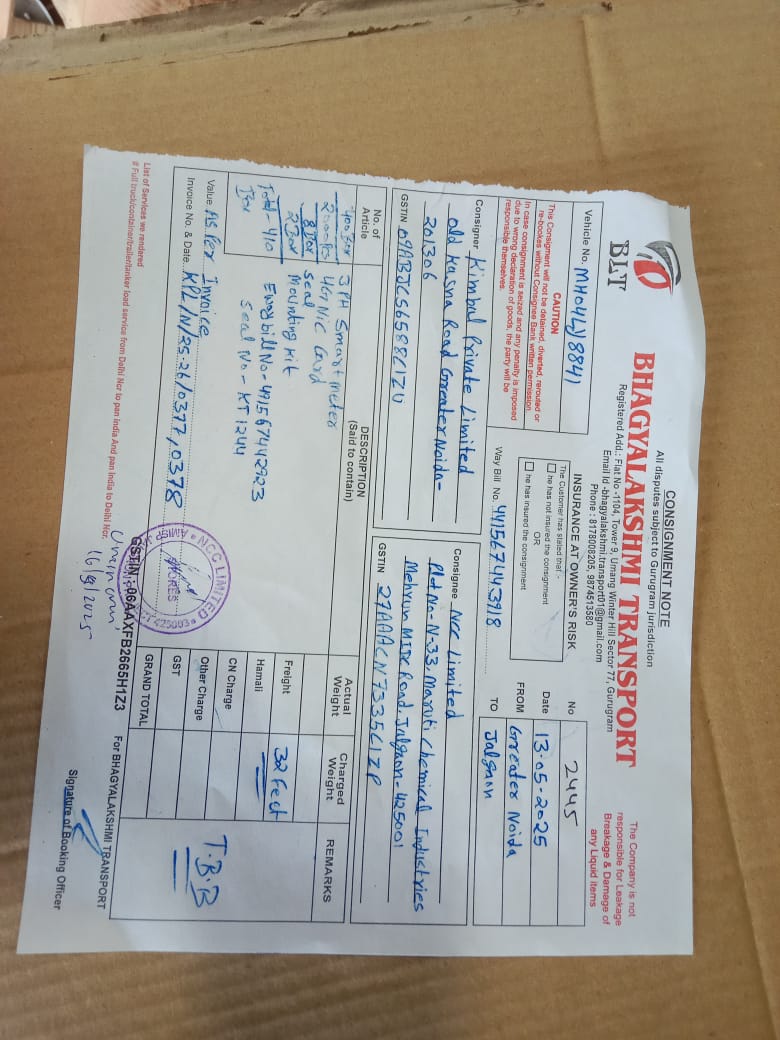 CONSIGNMENT NOTE
All disputes subject to Gurugram jurisdiction
BLT
BHAGYALAKSHMI TRANSPORT
Registered Add.: Flat No -1104, Tower 9, Umang Winter Hill Sector 77, Gurugram
Email Id -bhagyalakshmi.transport01@gmail.com
Phone : 8178008205, 9874513580
The Company is not
responsible for Leakage
Breakage & Damage of
any Liquid items
Vehicle No. MH04LY8841
CAUTION
This Consignment will not be detained, diverted, rerouted or
re-bookes without Consignee Bank written permission
In case consignment is seized and any penalty is imposed
due to wrong declaration of goods, the party will be
responsible themselves.
INSURANCE AT OWNER'S RISK
The Customer has stated that :-
he has not insured the consignment
OR
he has insured the consignment
Way Bill No. 441567443918
No 2445
Date 13-05-2025
FROM Greater Noida
TO Jalgaon
Consigner Kimbal Private Limited
Old Kasna Road Greater Noida-
201306
GSTIN 09ABJCS6588C1ZU
Consignee Ncc Limited
Plot No-N-33, Maruti Chemical Industries
Mehrun MIDC Road, Jalgaon-425001
GSTIN 27AAACN7335C1ZP
No. of
Article
DESCRIPTION
(Said to contain)
Actual
Weight
Charged
Weight
REMARKS
400 Box 3PH Smart meter
2000 Pcs 4G NIC Card
8 Box Seal
2 Box Mounting kit
Total - 410
Box
Eway bill No- 491567442923
Seal No- KT1244
Freight 32 Feet
Hamali
CN Charge
Other Charge
GST
GRAND TOTAL
T.B.B
Value As Per Invoice
Invoice No. & Date. KPL/N/25-26/0377,0378
NCC LIMITED
STORES
425003
GSTIN :-06AAXFB2665H1Z3
16/9/2025
List of Services we rendered
# Full truck/container/trailer/tanker load service from Delhi Ncr to pan india And pan India to Delhi Ncr.
For BHAGYALAKSHMI TRANSPORT
Signature of Booking Officer